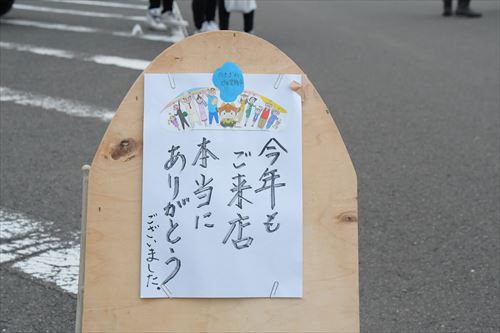 今年も
ご来店
本当に
ありがとう
ございました。